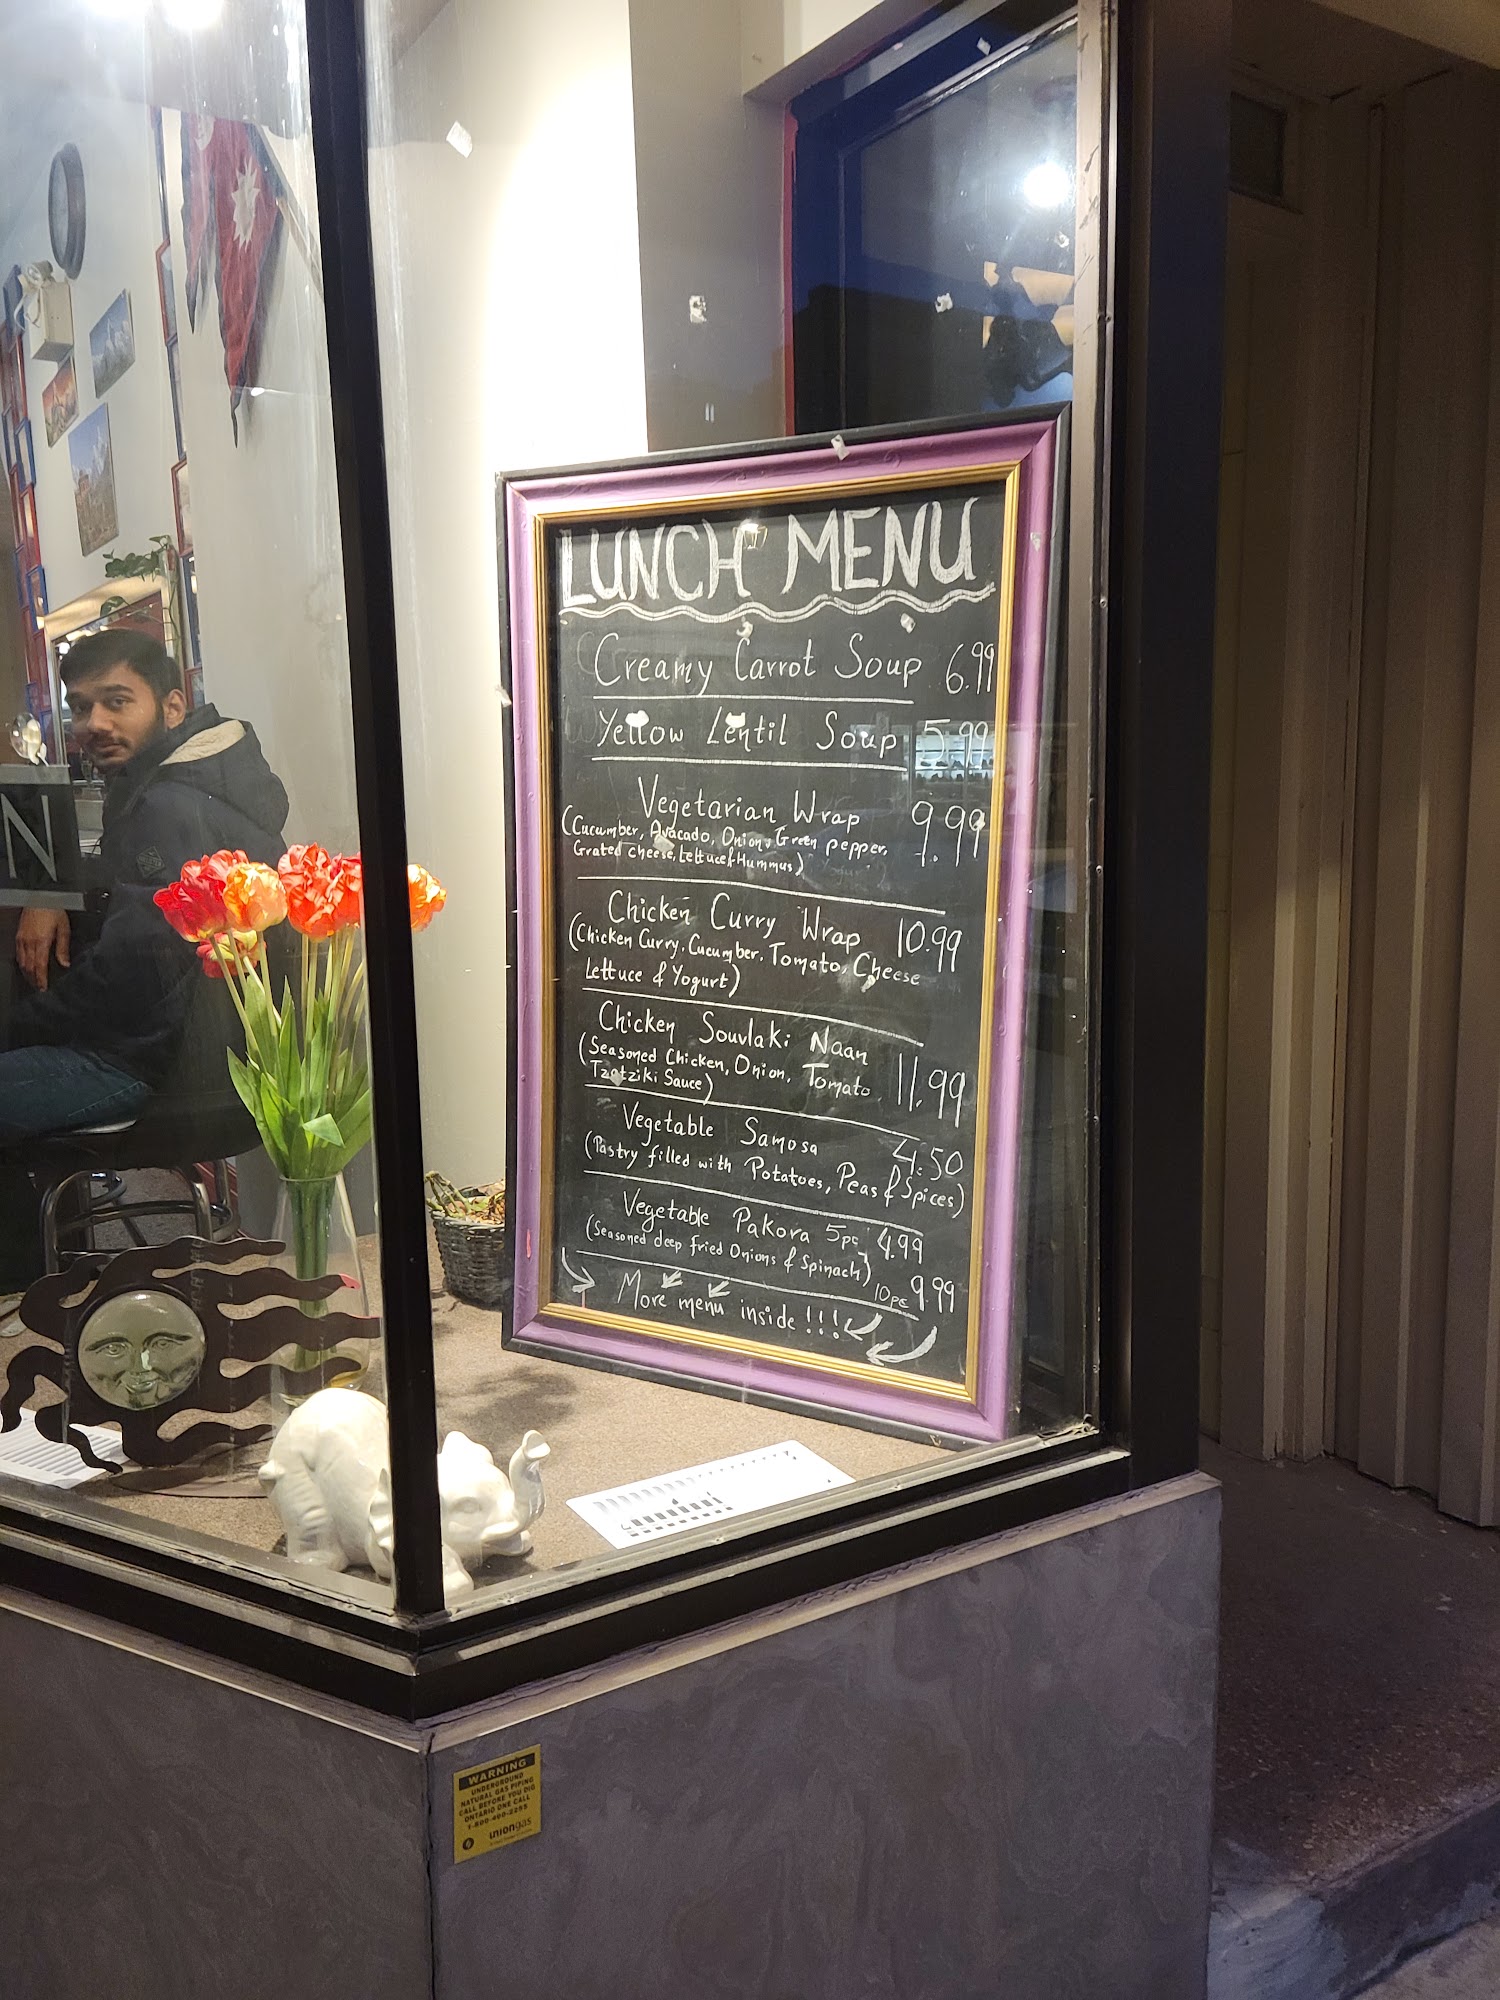 LUNCH MENU
Creamy Carrot Soup 6.99
Yellow Lentil Soup 5.99
Vegetarian Wrap 9.99
(Cucumber, Avocado, Onion, Green pepper,
Grated cheese, Lettuce & Hummus)
Chicken Curry Wrap 10.99
(Chicken Curry, Cucumber, Tomato, Cheese
Lettuce & Yogurt)
Chicken Souvlaki Naan 11.99
(Seasoned Chicken, Onion, Tomato,
Tzatziki Sauce)
Vegetable Samosa 4.50
(Pastry filled with Potatoes, Peas & Spices)
Vegetable Pakora 5pc 4.99
(Seasoned deep fried Onions & Spinach) 10pc 9.99
More menu inside !!!
N
WARNING
UNDERGROUND
NATURAL GAS PIPING
CALL BEFORE YOU DIG
ONTARIO ONE CALL
1-800-400-2255
uniongas